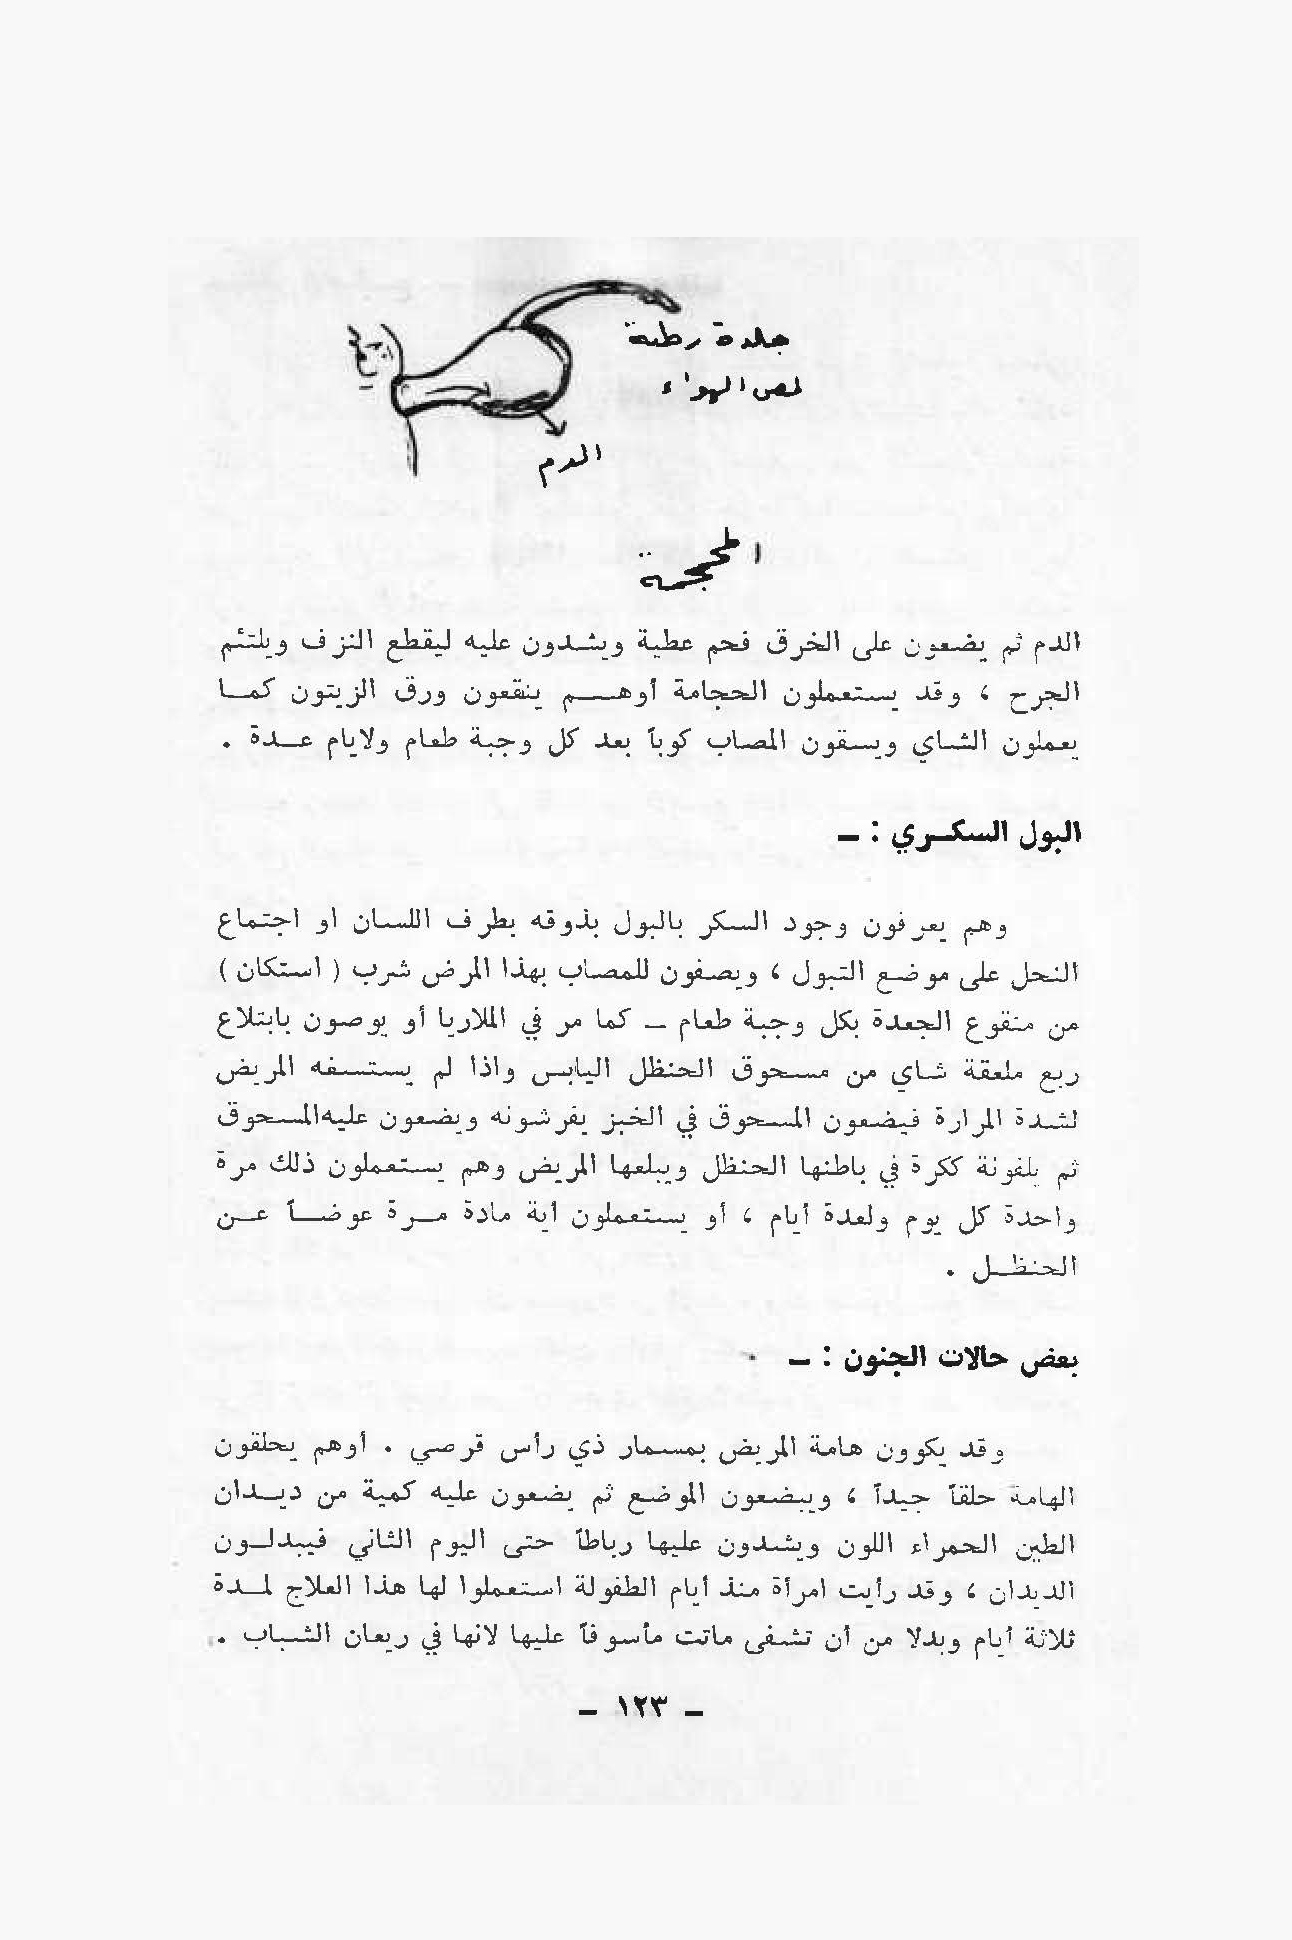 جلدة رطبة
لمص الهواء
الدم
المحجمة
الدم ثم يضعون على الخرق فحم عطبة ويشدون عليه ليقطع النزف ويلتئم
الجرح ، وقد يستعملون الحجامة أوهم ينقعون ورق الزيتون كما
يعملون الشاي ويسقون المصاب كوباً بعد كل وجبة طعام ولايام عدة .
البول السكري : –
وهم يعرفون وجود السكر بالبول بذوقه بطرف اللسان او اجتماع
النحل على موضع التبول ، ويصفون للمصاب بهذا المرض شرب ( استكان )
من منقوع الجعدة بكل وجبة طعام – كما مر في الملاريا أو يوصون بابتلاع
ربع ملعقة شاي من مسحوق الحنظل اليابس واذا لم يستسفه المريض
لشدة المرارة فيضعون المسحوق في الخبز يفرشونه ويضعون عليه المسحوق
ثم يلفونة ككرة في باطنها الحنظل ويبلعها المريض وهم يستعملون ذلك مرة
واحدة كل يوم ولعدة أيام ، أو يستعملون أية مادة مرة عوضاً عن
الحنظل .
بعض حالات الجنون : –
وقد يكوون هامة المريض بمسمار ذي رأس قرصي . أوهم يحلقون
الهامة حلقاً جيداً ، ويبضعون الموضع ثم يضعون عليه كمية من ديدان
الطين الحمراء اللون ويشدون عليها رباطاً حتى اليوم الثاني فيبدلون
الديدان ، وقد رأيت امرأة منذ أيام الطفولة استعملوا لها هذا العلاج لمدة
ثلاثة أيام وبدلا من أن تشفى ماتت مأسوفاً عليها لانها في ريعان الشباب .
– ١٢٣ –